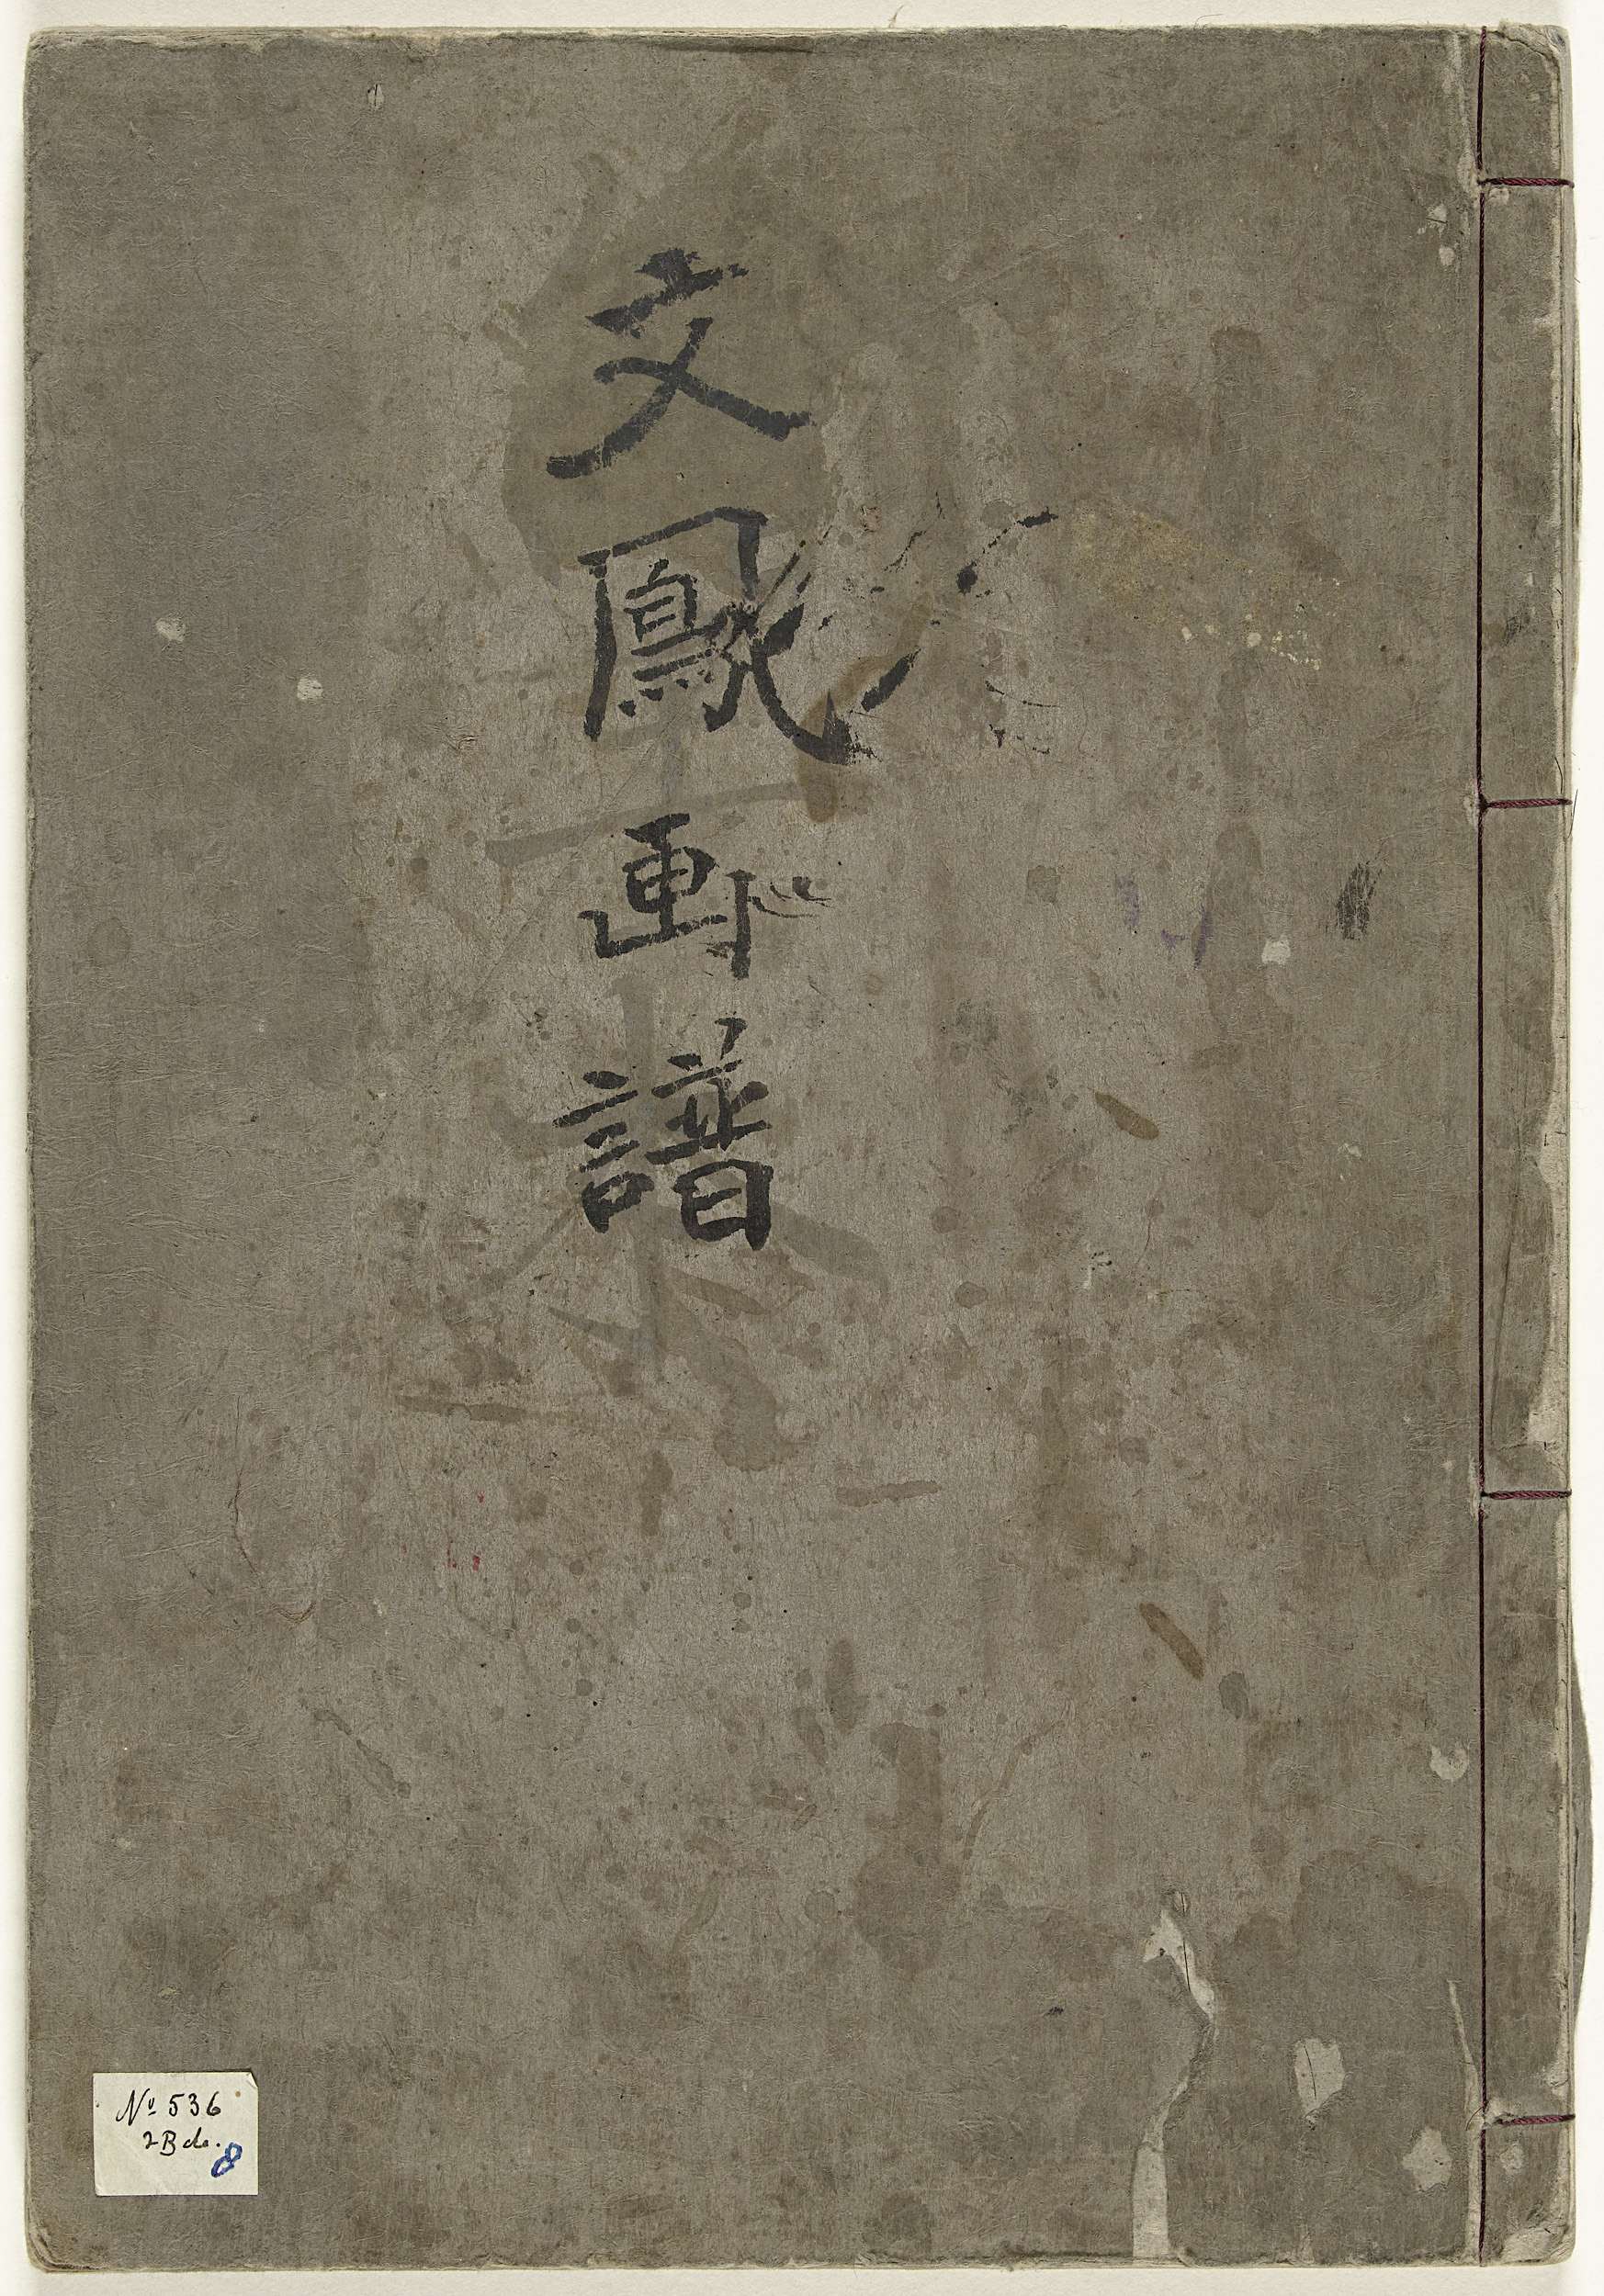 文鳳画譜
No 536
2 Bde.
8